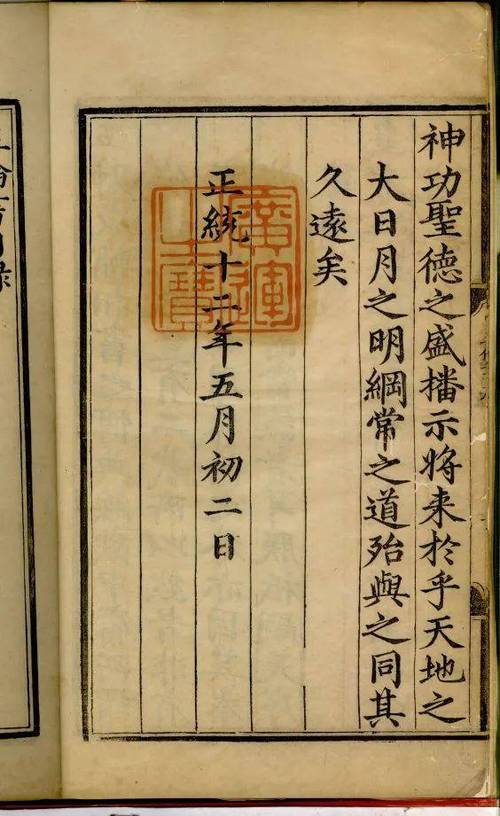 神功聖德之盛播示將来於乎天地之
大日月之明綱常之道殆與之同其
久遠矣
正統十二年五月初二日
廣運之寶